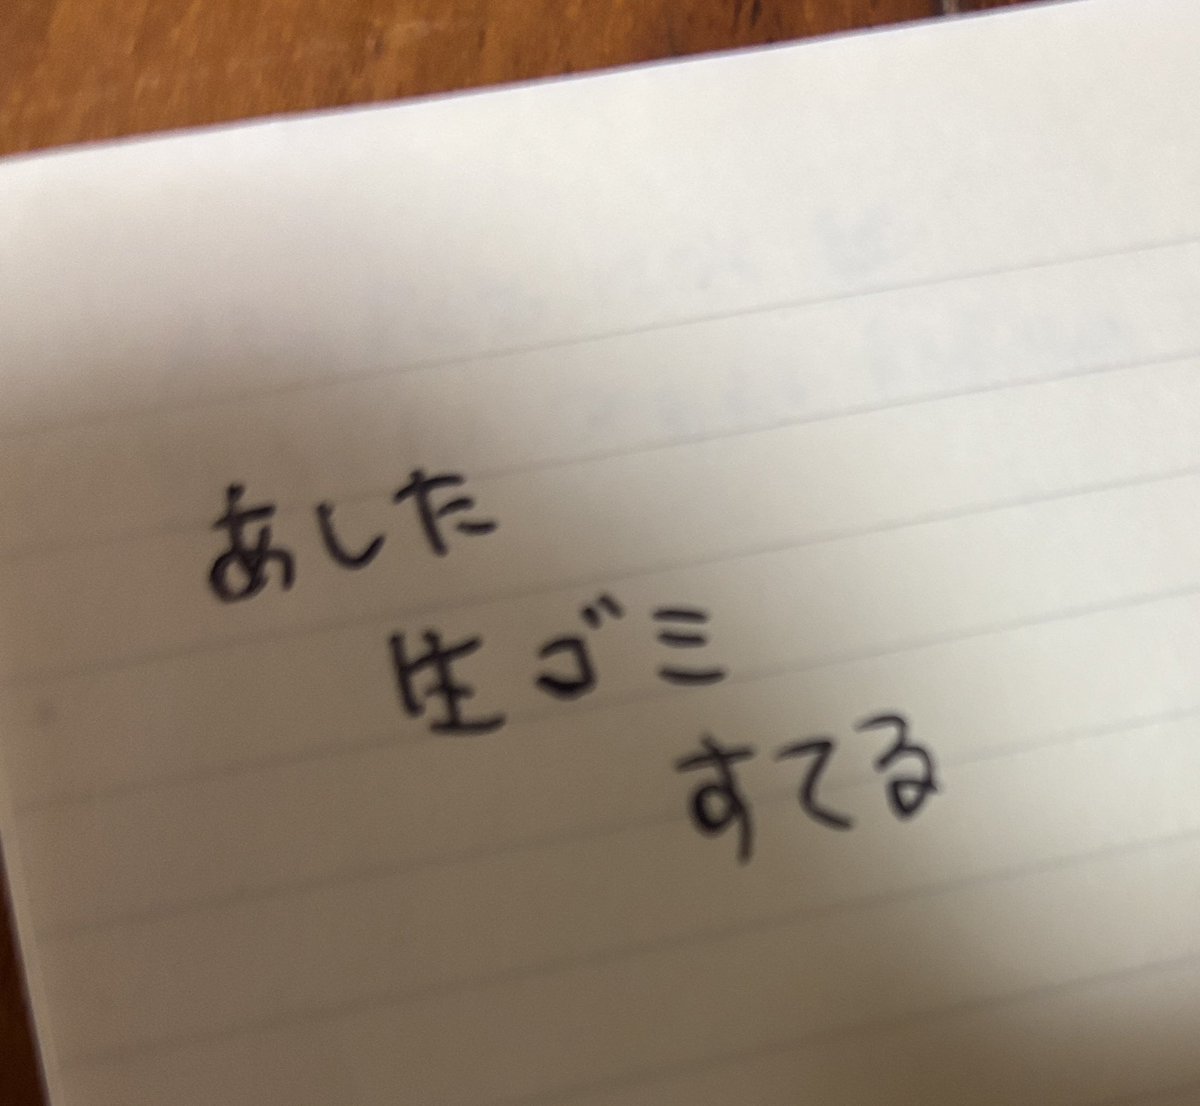 あした
生ゴミ
すてる